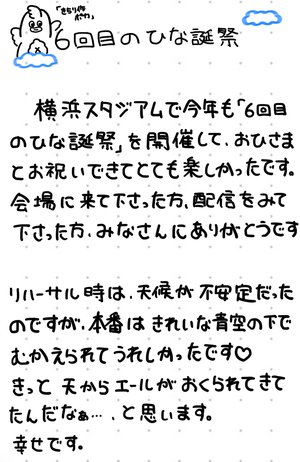 「きらりんポポ」
6回目のひな誕祭
横浜スタジアムで今年も「6回目
のひな誕祭」を開催して、おひさま
とお祝いできてとても楽しかったです。
会場に来て下さった方、配信をみて
下さった方、みなさんにありがとうです
リハーサル時は、天候が不安定だった
のですが、本番はきれいな青空の下で
むかえられてうれしかったです♡
きっと天からエールがおくられてきて
たんだなぁ…、と思います。
幸せです。